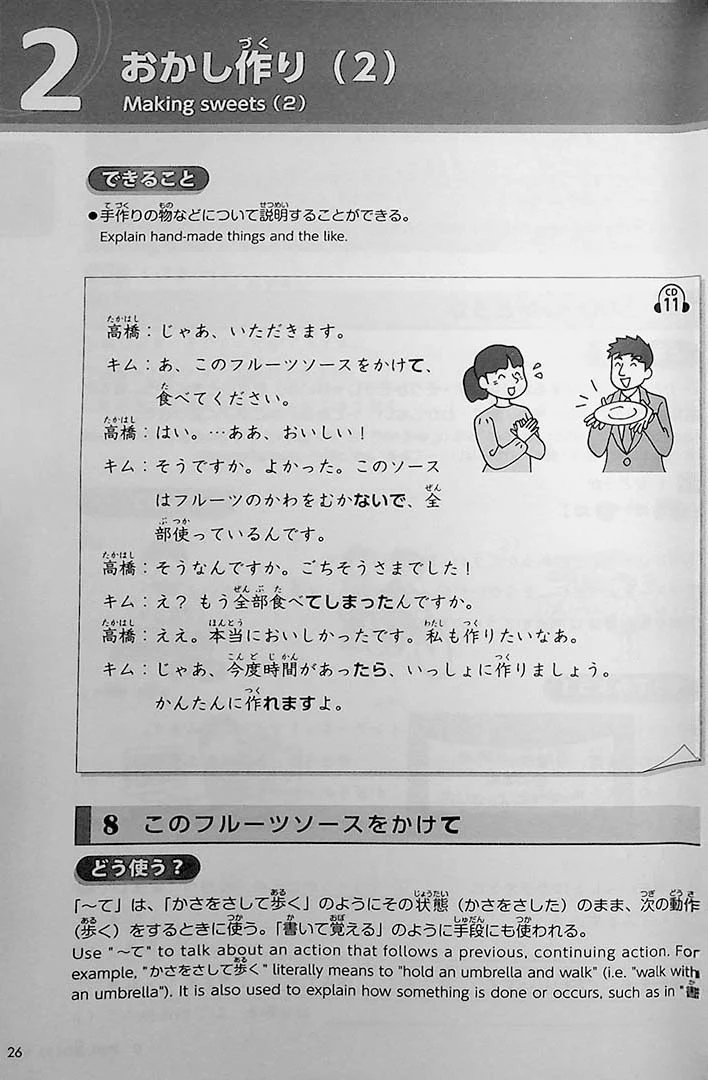 2
おかし作り（2）
Making sweets（2）
できること
●手作りの物などについて説明することができる。
Explain hand-made things and the like.
CD
11
高橋：じゃあ、いただきます。
キム：あ、このフルーツソースをかけて、
食べてください。
高橋：はい。…ああ、おいしい！
キム：そうですか。よかった。このソース
はフルーツのかわをむかないで、全
部使っているんです。
高橋：そうなんですか。ごちそうさまでした！
キム：え？ もう全部食べてしまったんですか。
高橋：ええ。本当においしかったです。私も作りたいなあ。
キム：じゃあ、今度時間があったら、いっしょに作りましょう。
かんたんに作れますよ。
8 このフルーツソースをかけて
どう使う？
「～て」は、「かさをさして歩く」のようにその状態（かさをさした）のまま、次の動作
（歩く）をするときに使う。「書いて覚える」のように手段にも使われる。
Use "～て" to talk about an action that follows a previous, continuing action. For
example, "かさをさして歩く" literally means to "hold an umbrella and walk" (i.e. "walk with
an umbrella"). It is also used to explain how something is done or occurs, such as in "書
26